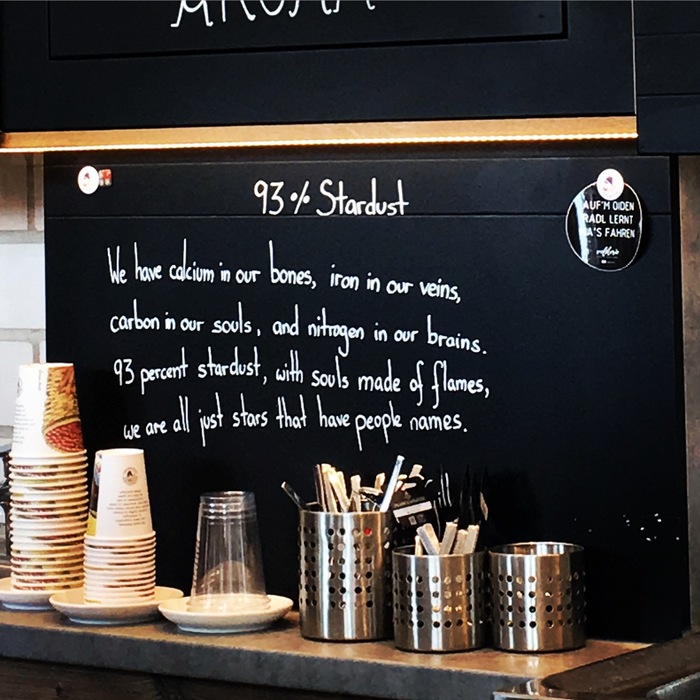 93% Stardust
We have calcium in our bones, iron in our veins,
carbon in our souls, and nitrogen in our brains.
93 percent stardust, with souls made of flames,
we are all just stars that have people names.
AUF'M OIDEN
RADL LERNT
FAHREN